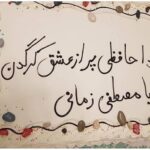 دا حافظی پر از عشق کرگدن
با مصطفی زمانی